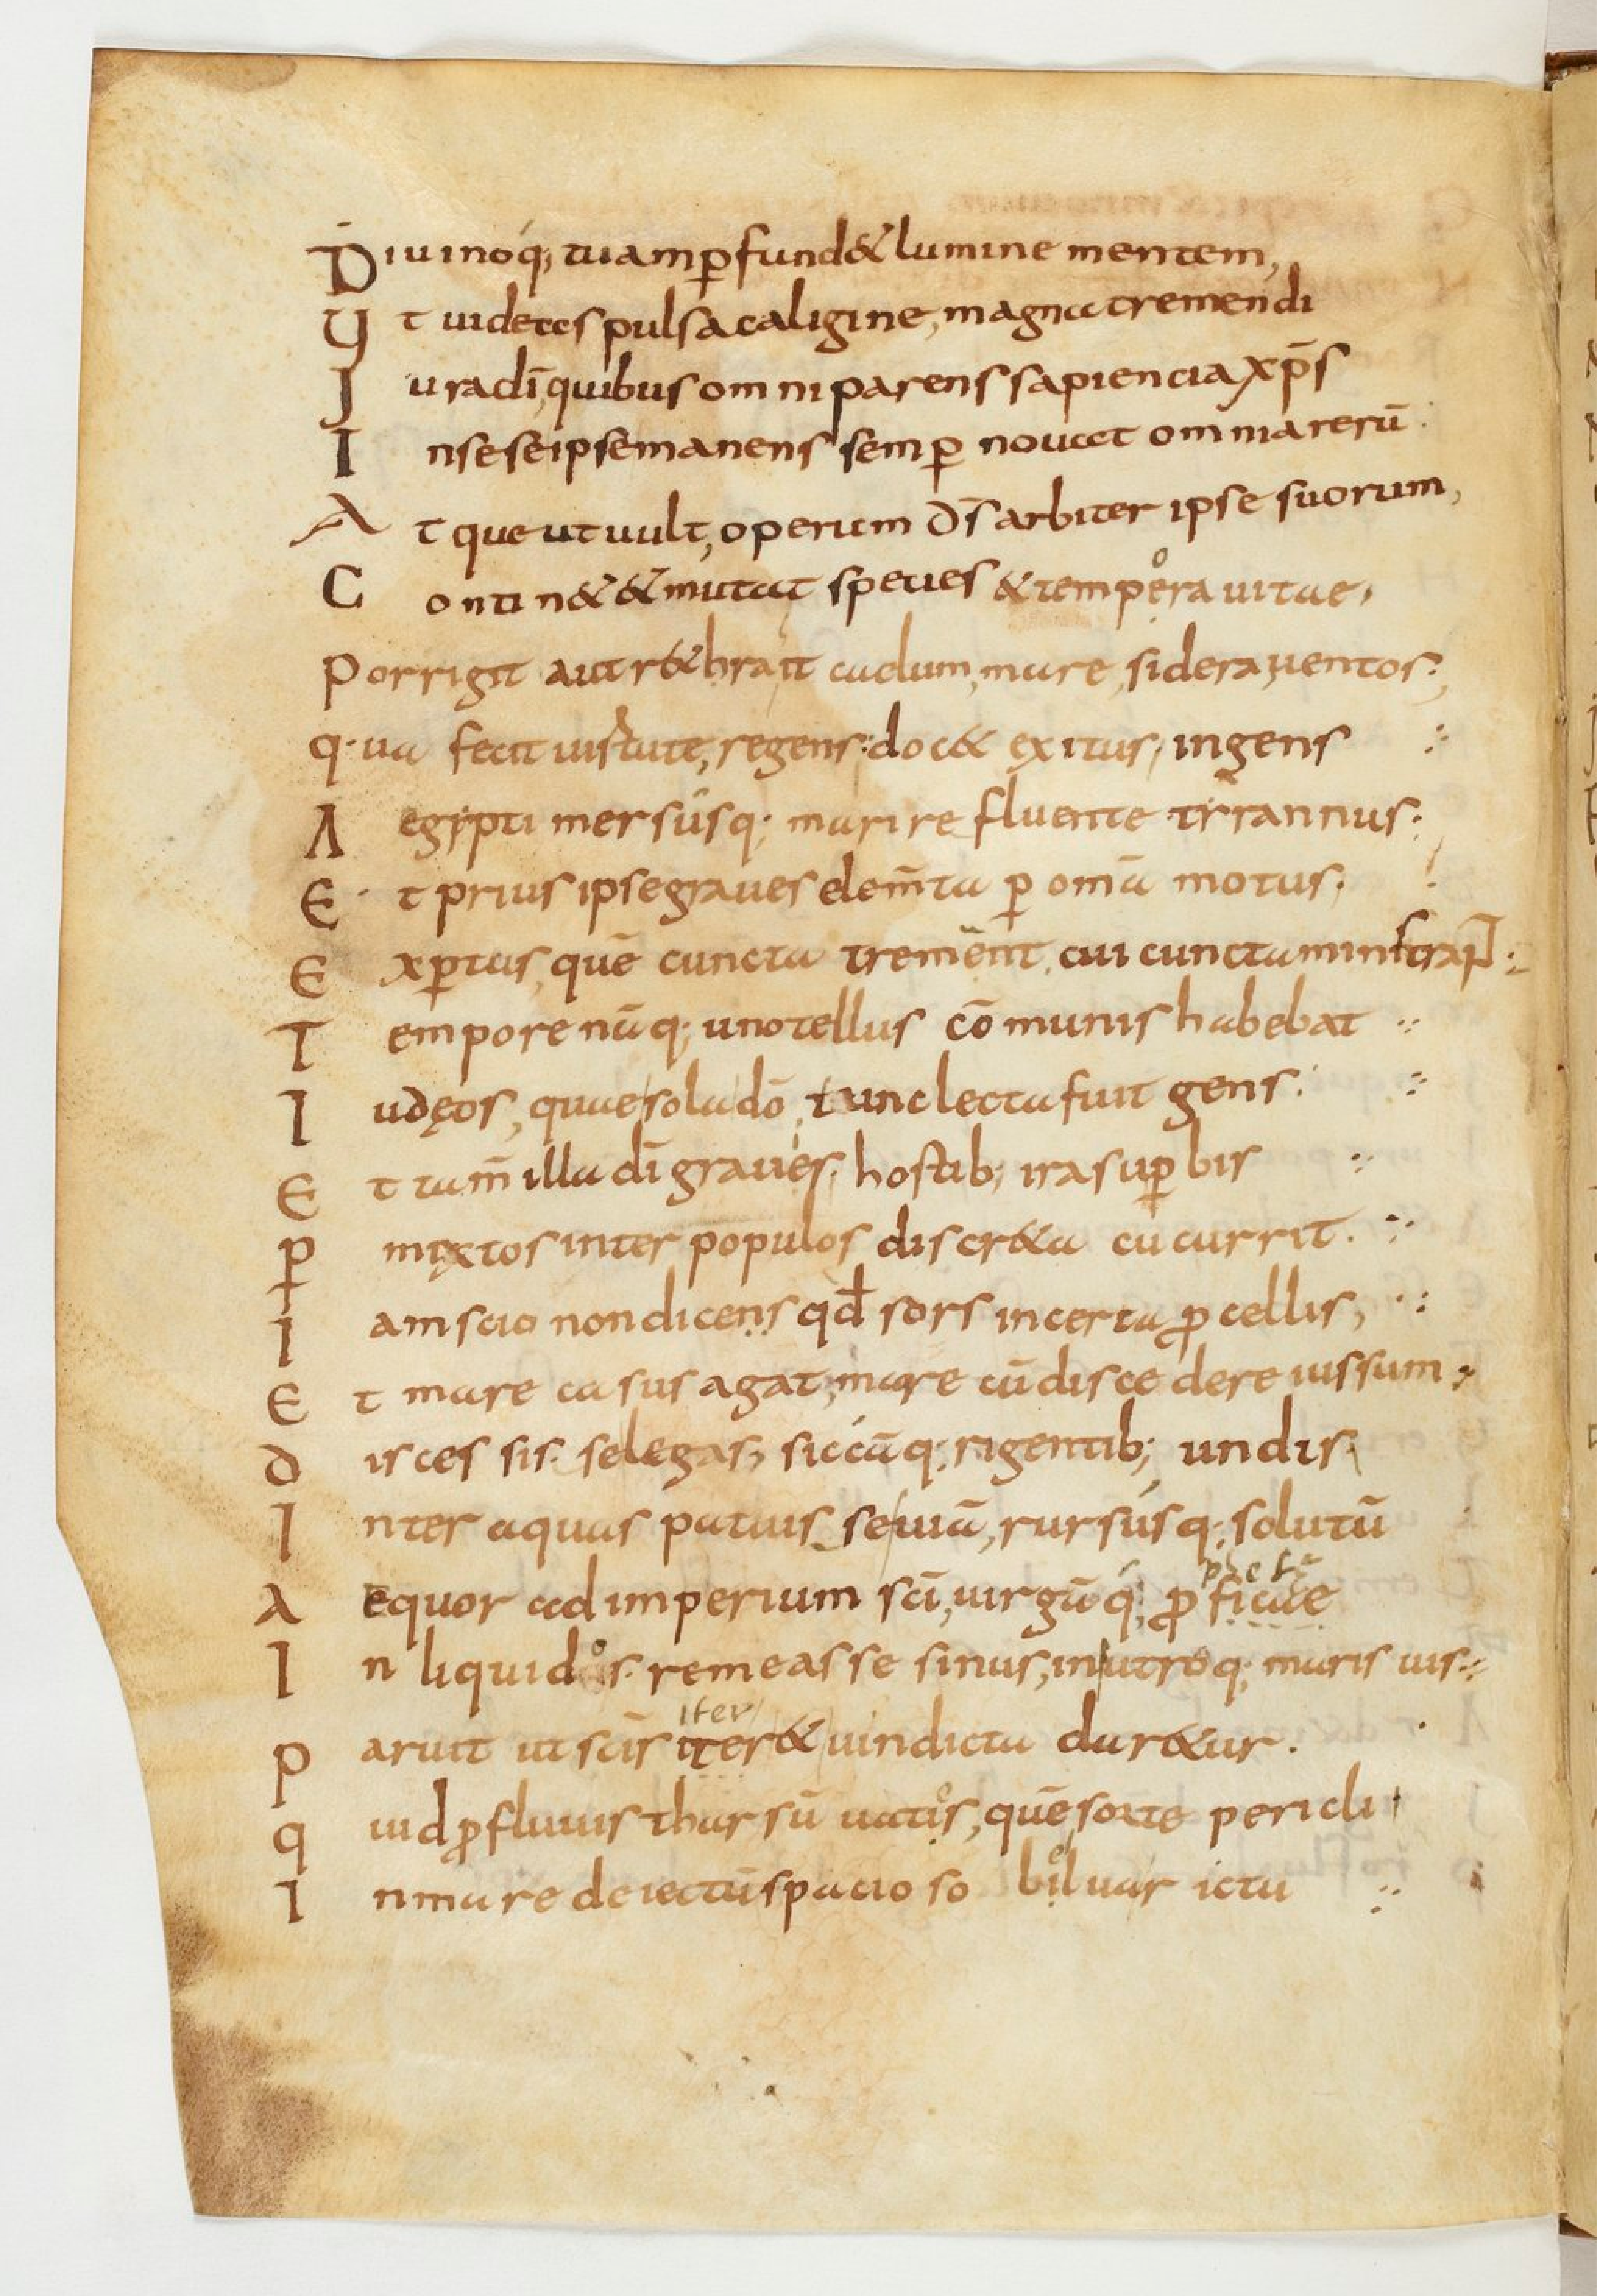 Diuinoq; tuam p̄fund& lumine mentem,
Ut uidetes pulsa caligine, magna tremendi
Jura dī, quibus omniparens sapiencia xp̄s
In sese ipse manens semp̄ nouat omnia rerū.
Atque ut uult, operum ds̄ arbiter ipse suorum,
Contin& & mutat species & tempera uitae,
Porrigit aut r&hrait caelum, mare, sidera, uentos.
q.ua fecit uirtute, regens: doc& exitus, ingens
Aegipti mersusq; mari refluente tirrannus.
Et prius ipse graues elem̄ta p̄ om̄a motus.
Exp̄tus, quē cuncta trement, cui cuncta ministrant
Tempore nāq; uno tellus cōmunis habebat
Iudęos, quae sola dō tunc lecta fuit gens.
Et tam̄ illa dī graues hostib; ira sup̄bis
p̄ mixtos inter populos discr&a cucurrit.
Iam scio non dicens qd̄ sors incerta p̄cellis,
Et mare casus agat, mare cū discedere iussum
discessisse legas, siccāq; rigentib; undis
Inter aquas patuisse uiā, rursusq; solutū
Aequor ad imperium scī, uirgāq; p̄ficae
In liquidos remeasse sinus, in utroq; maris uis
iter
paruit ut scīs iter & uindicta dar&ur.
quid p̄fluuis tharsū uatis, quē sorte pericli
In mare deiectū spacioso beluar ictu